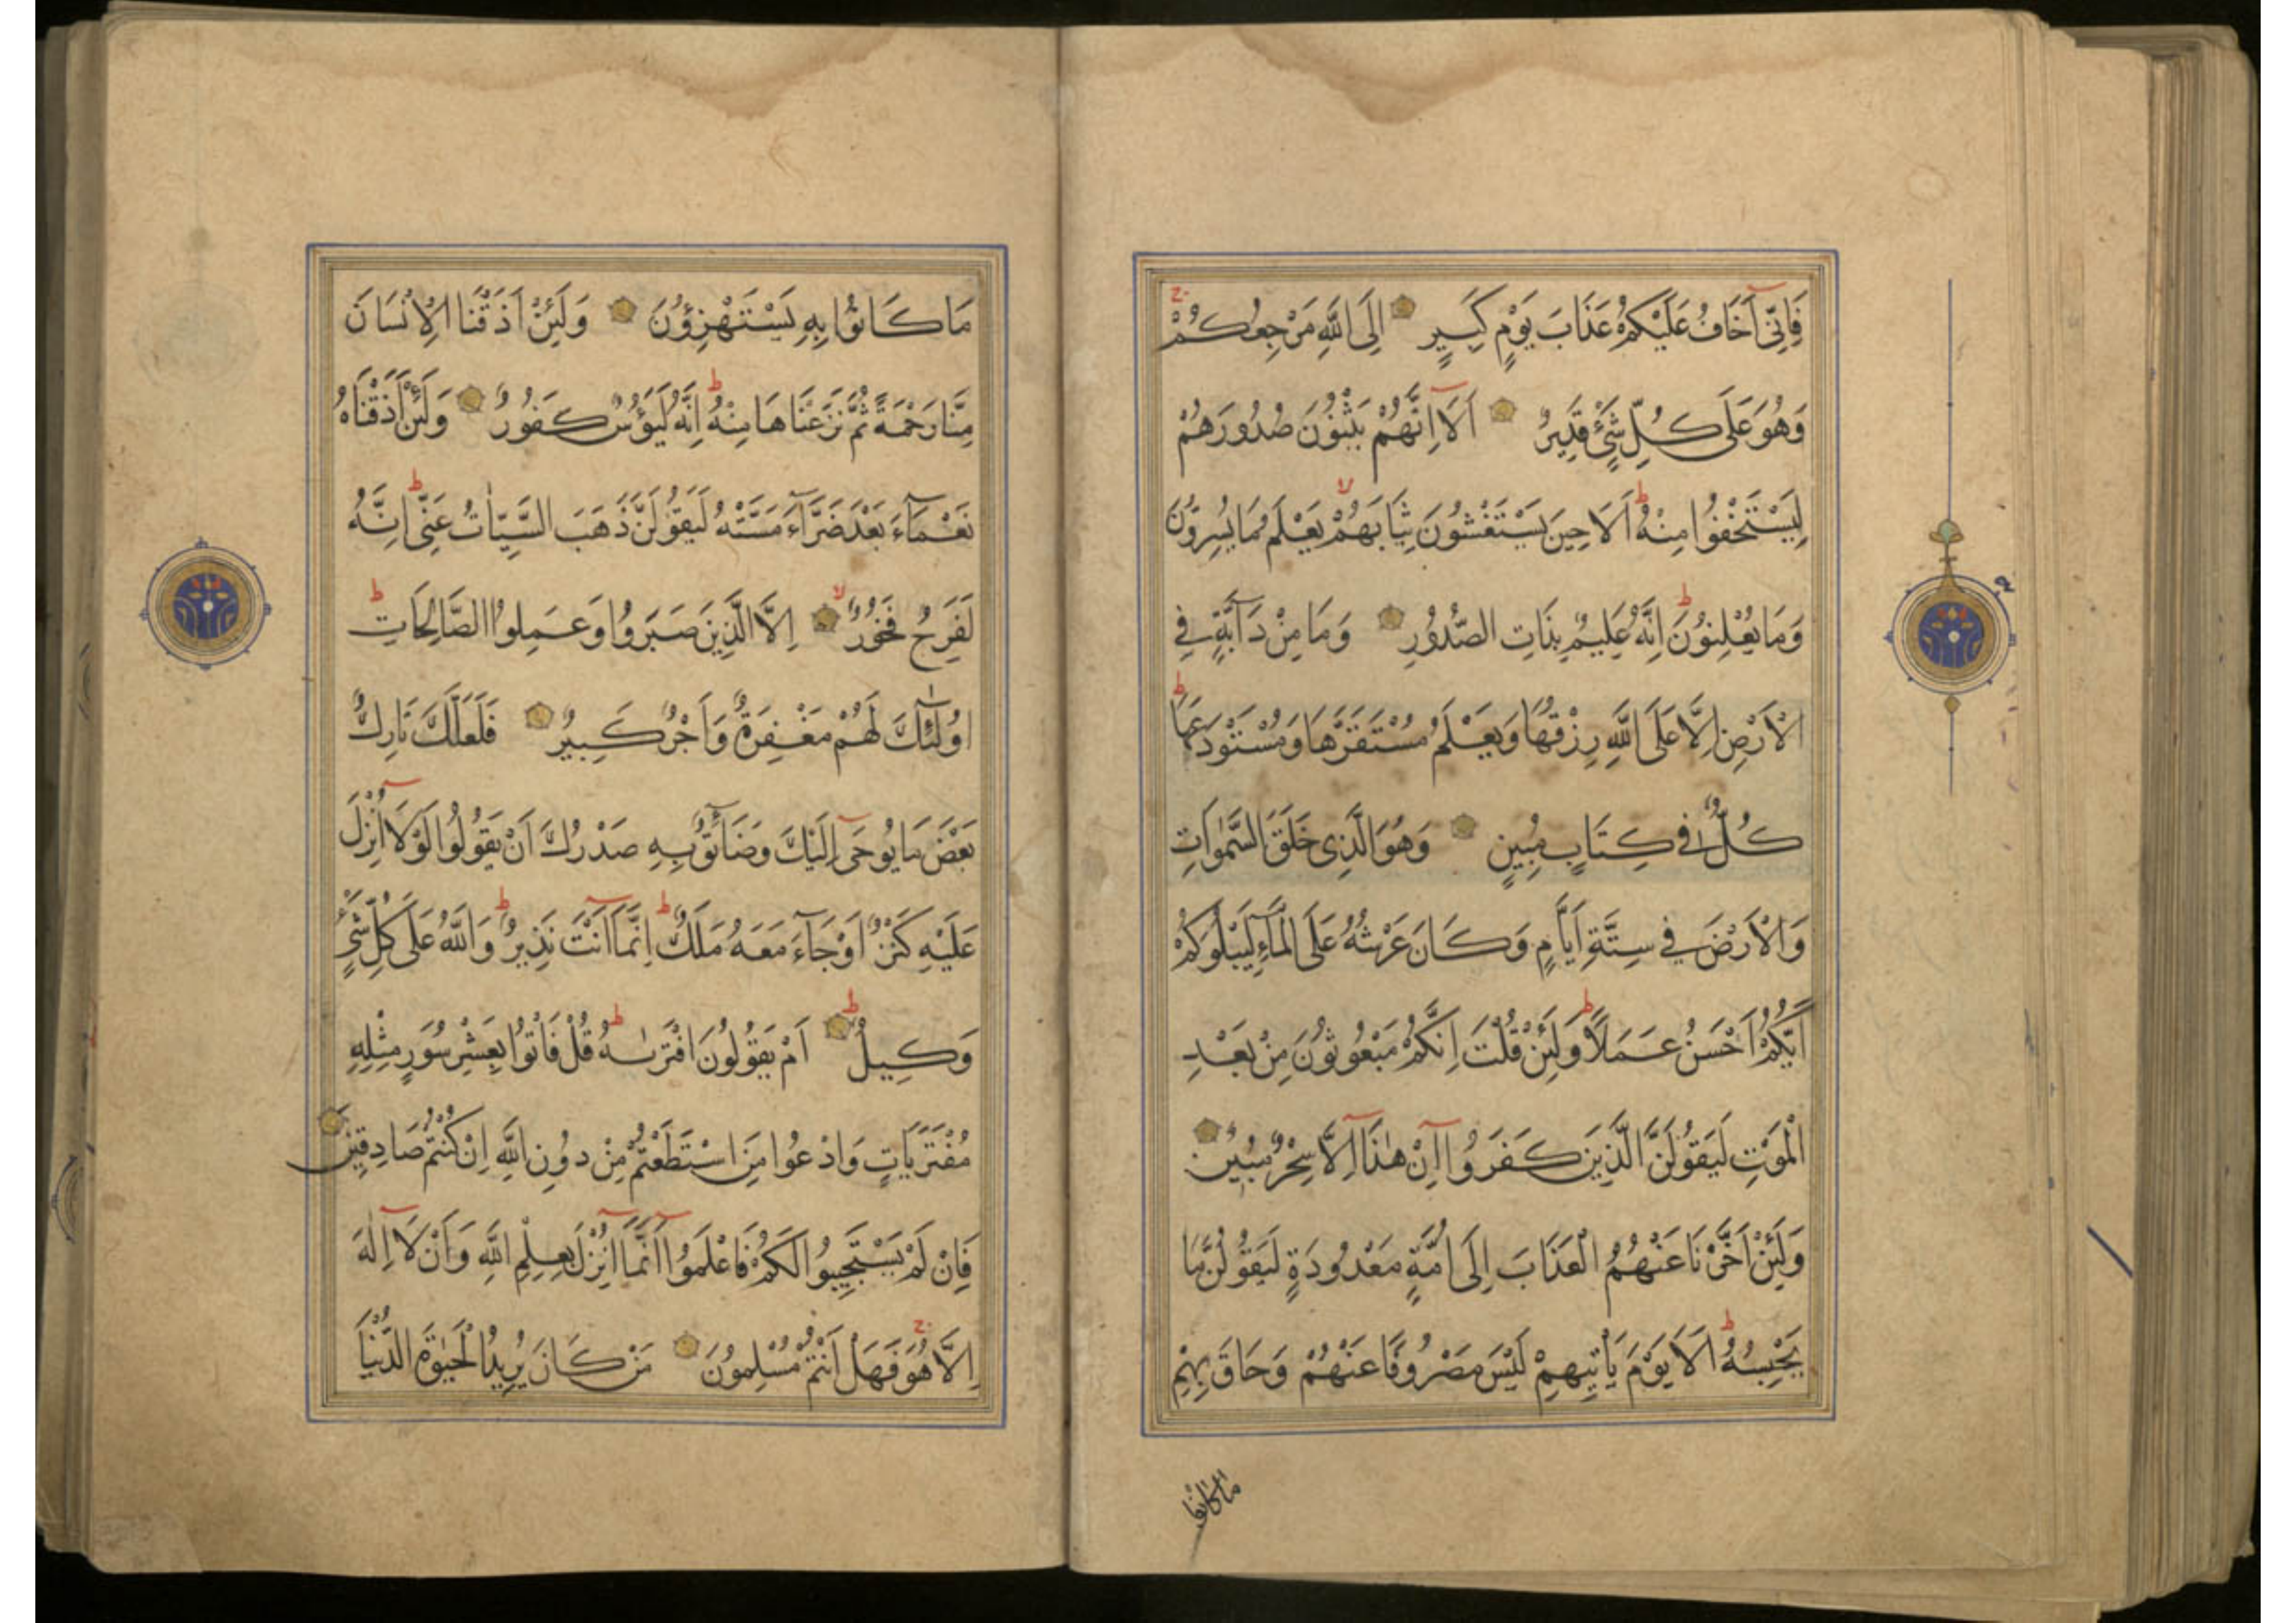 فَاِنِّى اَخَافُ عَلَيْكُمْ عَذَابَ يَوْمٍ كَبِيرٍ اِلَى اللّٰهِ مَرْجِعُكُمْ
وَهُوَ عَلَى كُلِّ شَىْءٍ قَدِيرٌ اَلَا اِنَّهُمْ يَثْنُونَ صُدُورَهُمْ
لِيَسْتَخْفُوا مِنْهُ اَلَا حِينَ يَسْتَغْشُونَ ثِيَابَهُمْ يَعْلَمُ مَا يُسِرُّونَ
وَمَا يُعْلِنُونَ اِنَّهُ عَلِيمٌ بِذَاتِ الصُّدُورِ وَمَا مِنْ دَآبَّةٍ فِى
الْاَرْضِ اِلَّا عَلَى اللّٰهِ رِزْقُهَا وَيَعْلَمُ مُسْتَقَرَّهَا وَمُسْتَوْدَعَهَا
كُلٌّ فِى كِتَابٍ مُبِينٍ وَهُوَ الَّذِى خَلَقَ السَّمٰوَاتِ
وَالْاَرْضَ فِى سِتَّةِ اَيَّامٍ وَكَانَ عَرْشُهُ عَلَى الْمَآءِ لِيَبْلُوَكُمْ
اَيُّكُمْ اَحْسَنُ عَمَلًا وَلَئِنْ قُلْتَ اِنَّكُمْ مَبْعُوثُونَ مِنْ بَعْدِ
الْمَوْتِ لَيَقُولَنَّ الَّذِينَ كَفَرُوا اِنْ هٰذَا اِلَّا سِحْرٌ مُبِينٌ
وَلَئِنْ اَخَّرْنَا عَنْهُمُ الْعَذَابَ اِلَى اُمَّةٍ مَعْدُودَةٍ لَيَقُولُنَّ مَا
يَحْبِسُهُ اَلَا يَوْمَ يَاْتِيهِمْ لَيْسَ مَصْرُوفًا عَنْهُمْ وَحَاقَ بِهِمْ
مَا كَانُوا
مَا كَانُوا بِهِ يَسْتَهْزِؤُنَ وَلَئِنْ اَذَقْنَا الْاِنْسَانَ
مِنَّا رَحْمَةً ثُمَّ نَزَعْنَاهَا مِنْهُ اِنَّهُ لَيَؤُسٌ كَفُورٌ وَلَئِنْ اَذَقْنَاهُ
نَعْمَآءَ بَعْدَ ضَرَّآءَ مَسَّتْهُ لَيَقُولَنَّ ذَهَبَ السَّيِّاٰتُ عَنِّى اِنَّهُ
لَفَرِحٌ فَخُورٌ اِلَّا الَّذِينَ صَبَرُوا وَعَمِلُوا الصَّالِحَاتِ
اُولٰئِكَ لَهُمْ مَغْفِرَةٌ وَاَجْرٌ كَبِيرٌ فَلَعَلَّكَ تَارِكٌ
بَعْضَ مَا يُوحَى اِلَيْكَ وَضَآئِقٌ بِهِ صَدْرُكَ اَنْ يَقُولُوا لَوْلَا اُنْزِلَ
عَلَيْهِ كَنْزٌ اَوْ جَآءَ مَعَهُ مَلَكٌ اِنَّمَا اَنْتَ نَذِيرٌ وَاللّٰهُ عَلَى كُلِّ شَىْءٍ
وَكِيلٌ اَمْ يَقُولُونَ افْتَرٰيهُ قُلْ فَاْتُوا بِعَشْرِ سُوَرٍ مِثْلِهِ
مُفْتَرَيَاتٍ وَادْعُوا مَنِ اسْتَطَعْتُمْ مِنْ دُونِ اللّٰهِ اِنْ كُنْتُمْ صَادِقِينَ
فَاِنْ لَمْ يَسْتَجِيبُوا لَكُمْ فَاعْلَمُوا اَنَّمَا اُنْزِلَ بِعِلْمِ اللّٰهِ وَاَنْ لَا اِلٰهَ
اِلَّا هُوَ فَهَلْ اَنْتُمْ مُسْلِمُونَ مَنْ كَانَ يُرِيدُ الْحَيٰوةَ الدُّنْيَا